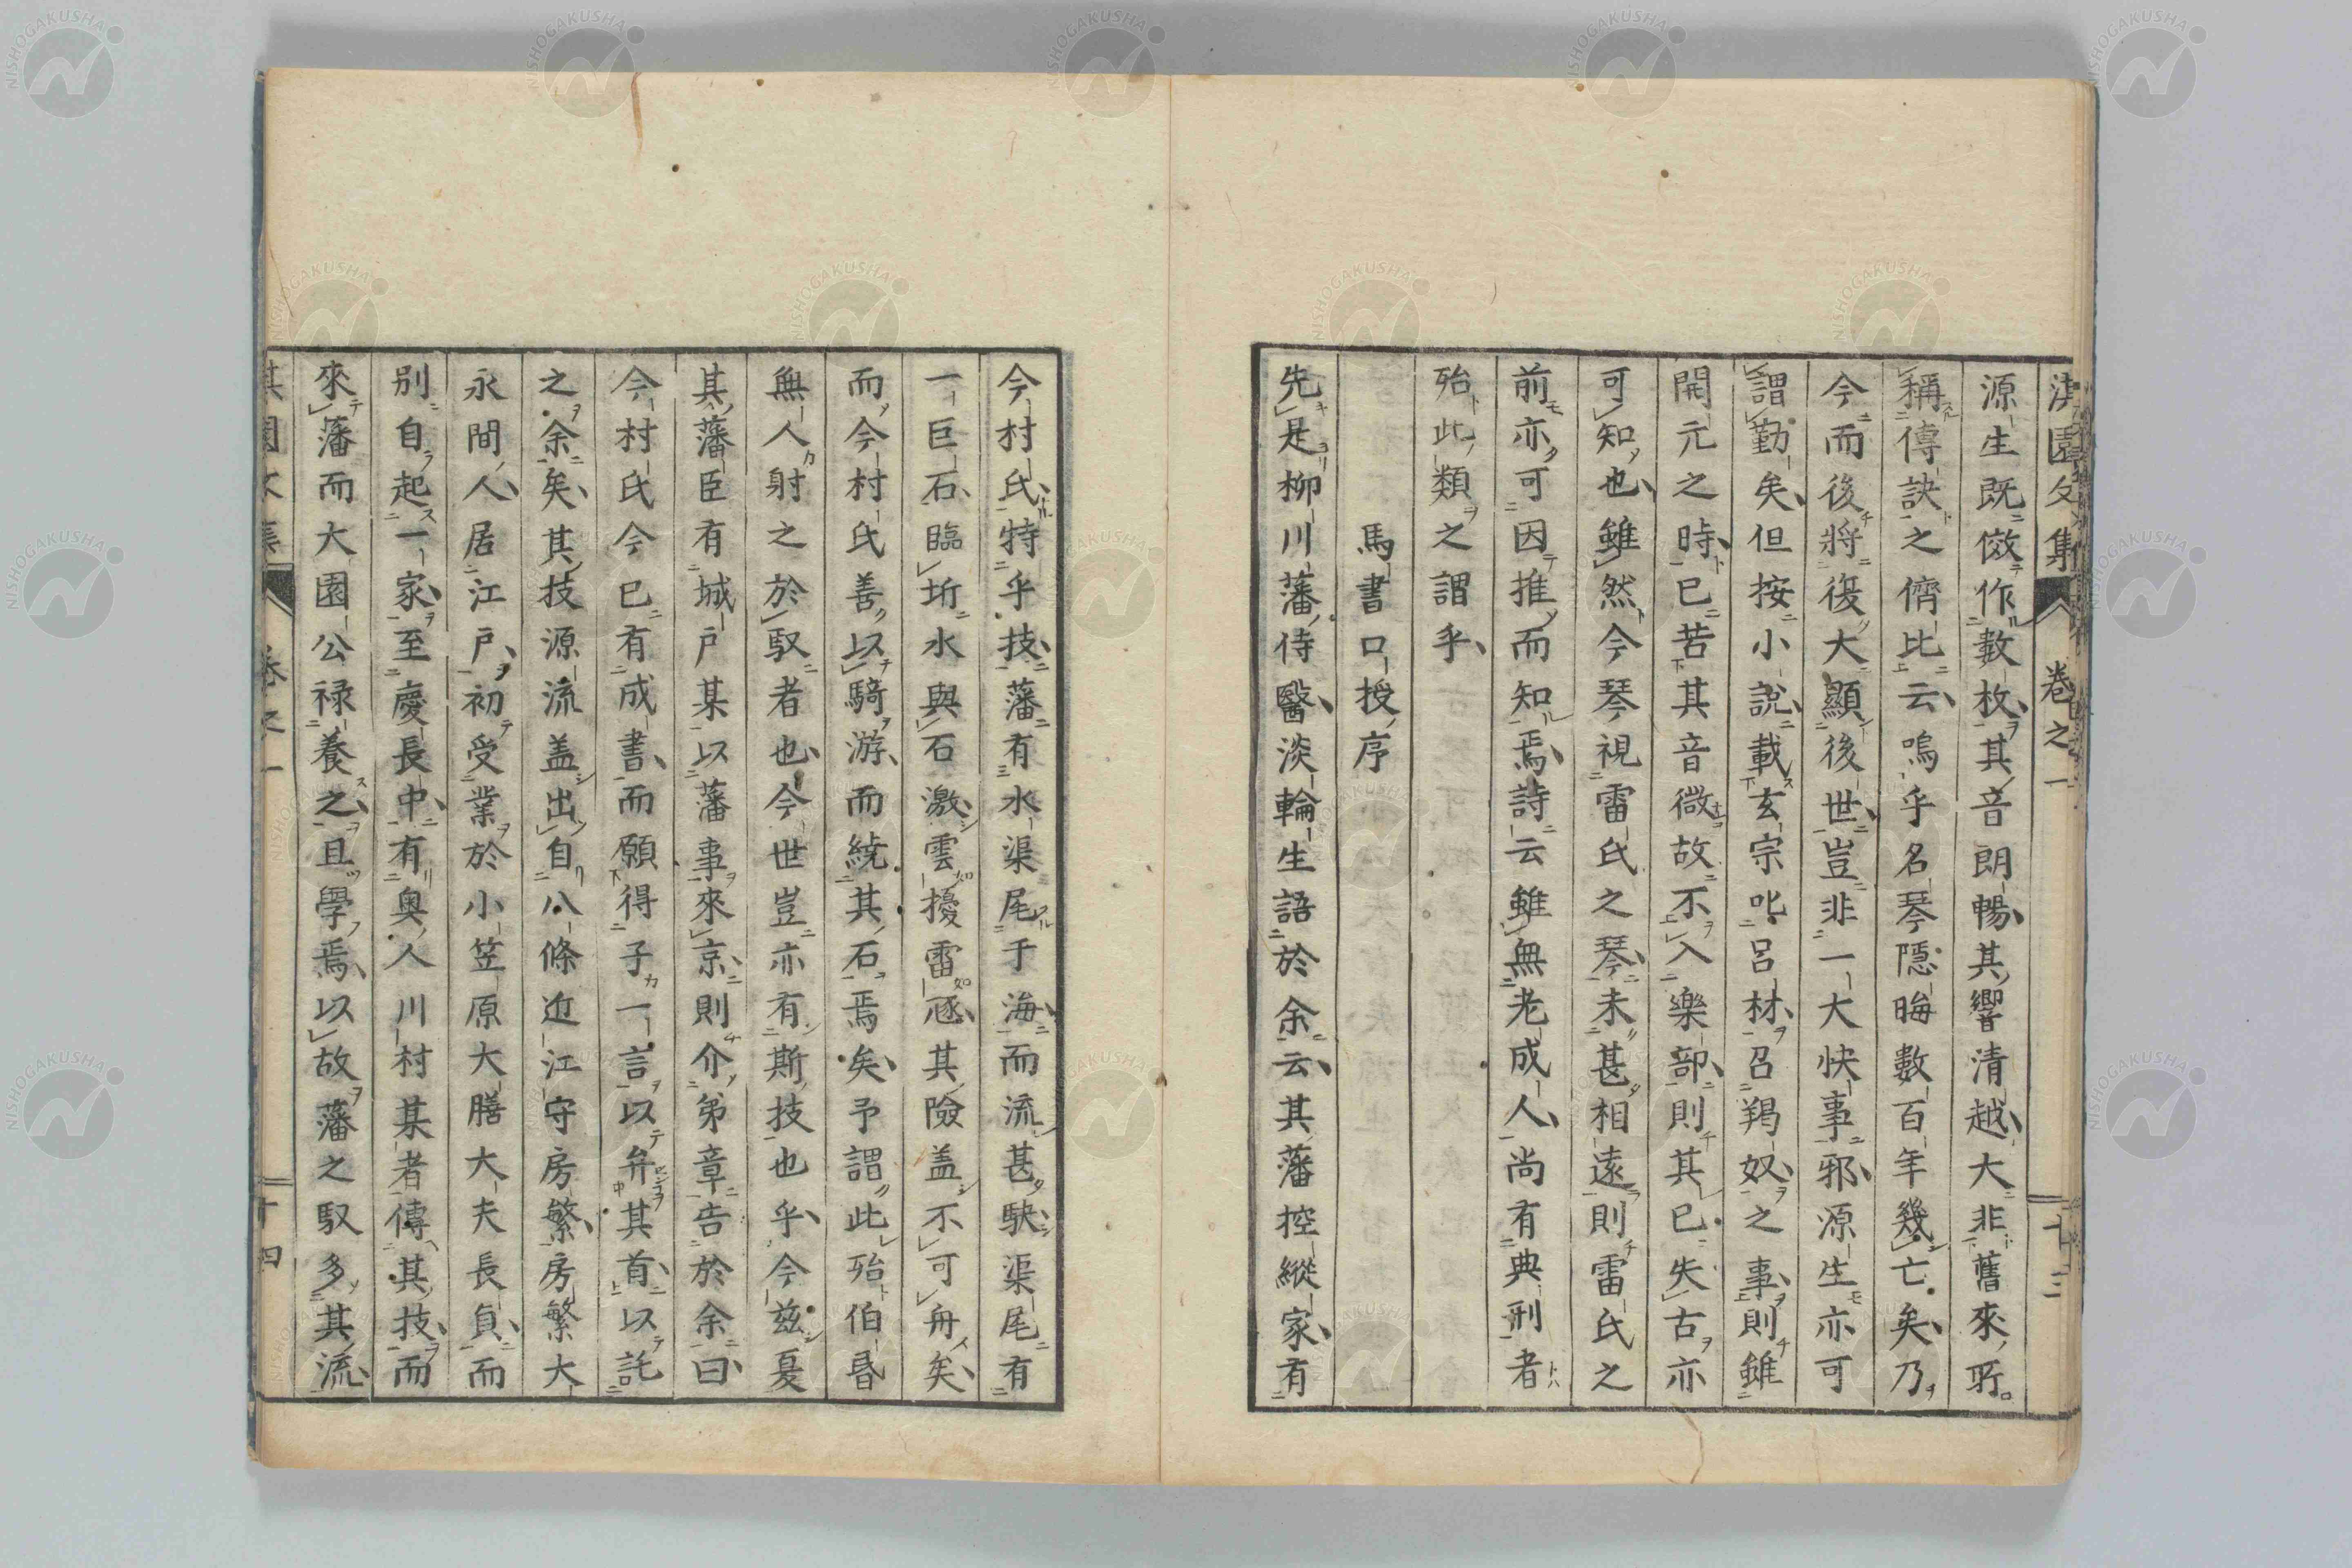 淇園文集 卷之一 十三
源生既倣作數枚其音朗暢其響清越大非舊來所
稱傳訣之儕比云嗚乎名琴隱晦數百年幾亡矣乃
今而後將復大顯後世豈非一大快事邪源生亦可
謂勤矣但按小說載玄宗叱呂材召羯奴之事則雖
開元之時已苦其音微故不入樂部則其已失古亦
可知也雖然今琴視雷氏之琴未甚相遠則雷氏之
前亦可因推而知焉詩云雖無老成人尚有典刑者
殆此類之謂乎
馬書口授序
先是柳川藩侍醫淡輪生語於余云其藩控縱家有
今村氏特乎技藩有水渠尾于海而流甚駃渠尾有
一巨石臨圻水與石激雲擾雷㐫其險盖不可舟矣
而今村氏善以騎游而繞其石焉矣予謂此殆伯昬
無人射之於馭者也今世豈亦有斯技也乎今茲夏
其藩臣有城戶某以藩事來京則介弟章告於余曰
今村氏今已有成書而願得子一言以弁其首以託
之余矣其技源流盖出自八條近江守房繁房繁大
永間人居江戶初受業於小笠原大膳大夫長貞而
別自起一家至慶長中有奧人川村某者傳其技而
來藩而大園公祿養之且學焉以故藩之馭多其流
淇園文集 卷之一 十四
NISHOGAKUSHA